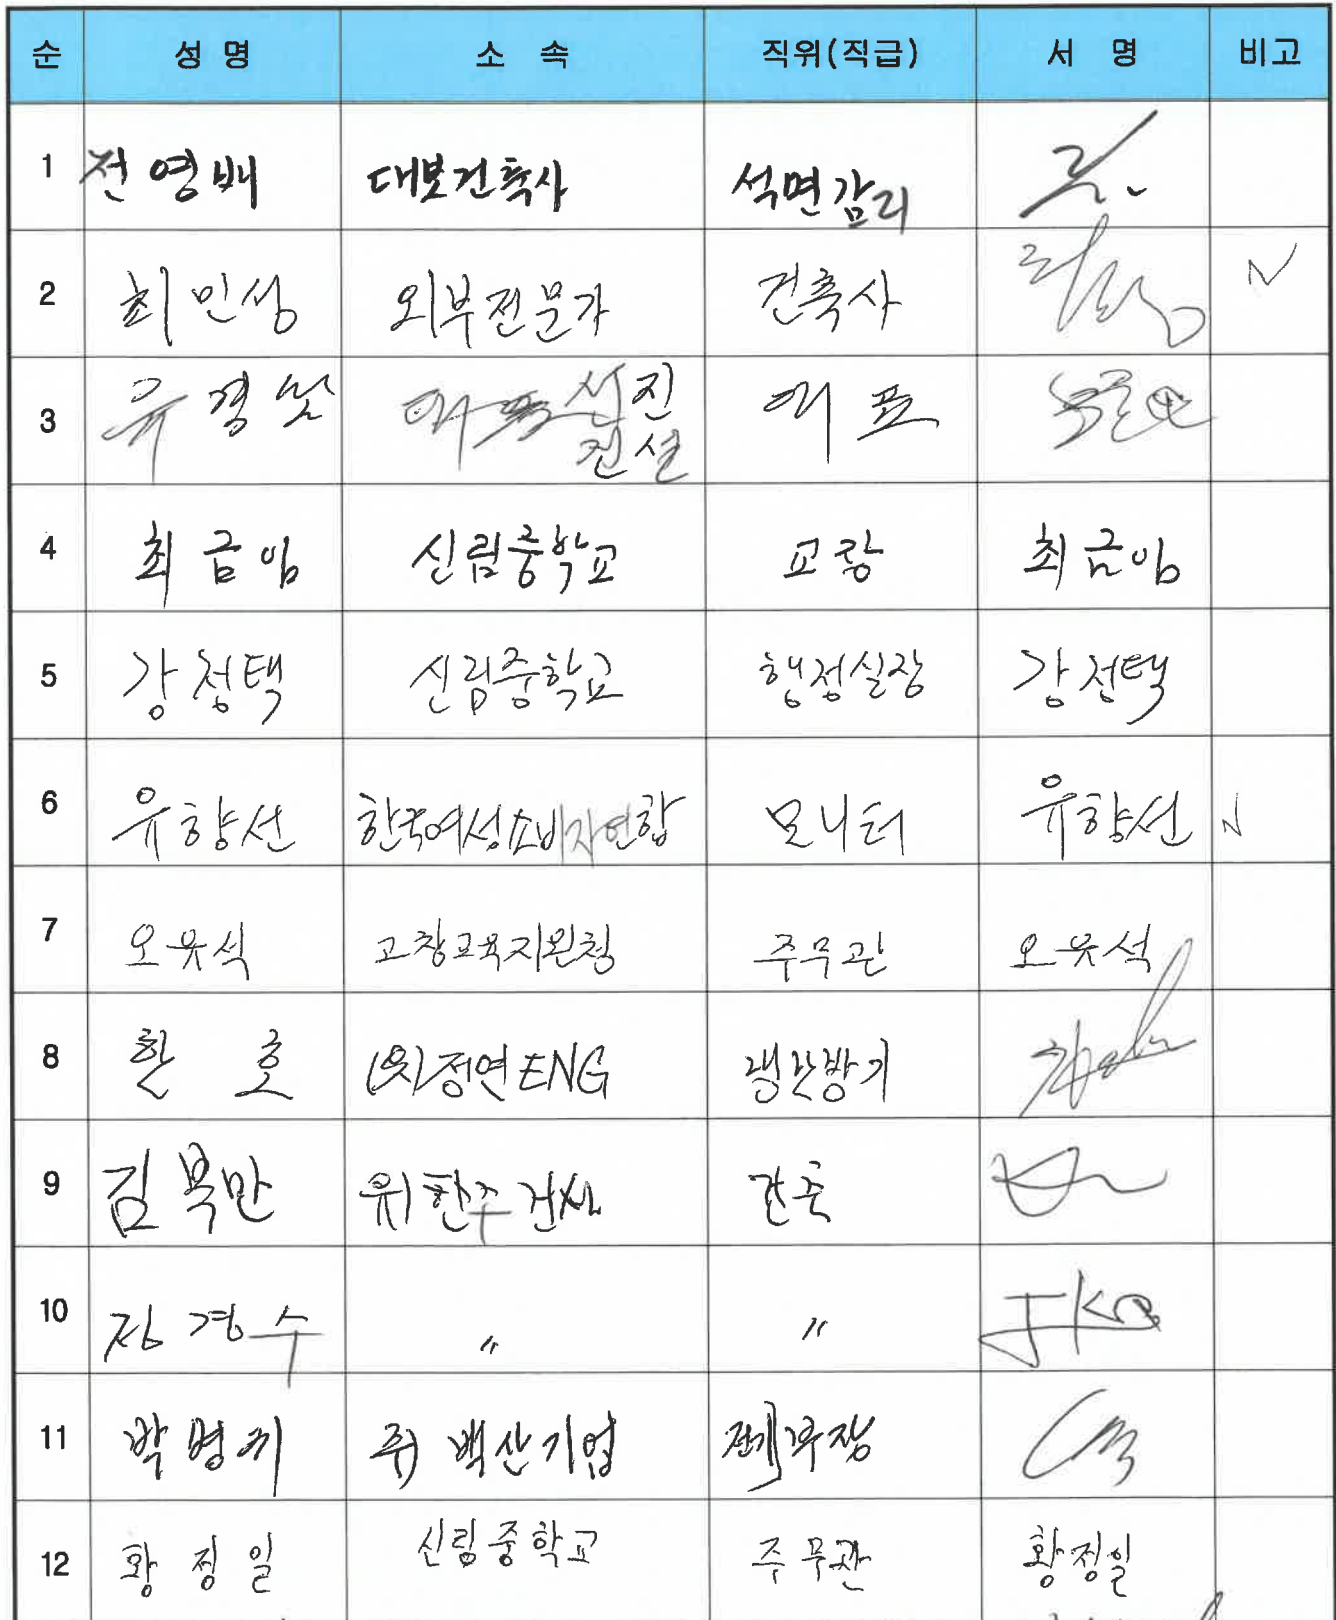 순 성명 소 속 직위(직급) 서 명 비고
1 전영배 대보건축사 석면감리
2 최민성 외부전문가 건축사
3 유경 선진 대표
건설
4 최금임 신림중학교 교장 최금임
5 강정택 신림중학교 행정실장 강정택
6 유향선 한국여성소비자연합 모니터 유향선
7 오윳석 고창교육지원청 주무관 오윳석
8 한 호 (유)정연ENG 냉난방기
9 김복만 유)한주건사 건축
10 장경수 〃 〃
11 박병기 주) 백산기업 부장
12 황정일 신림중학교 주무관 황정일